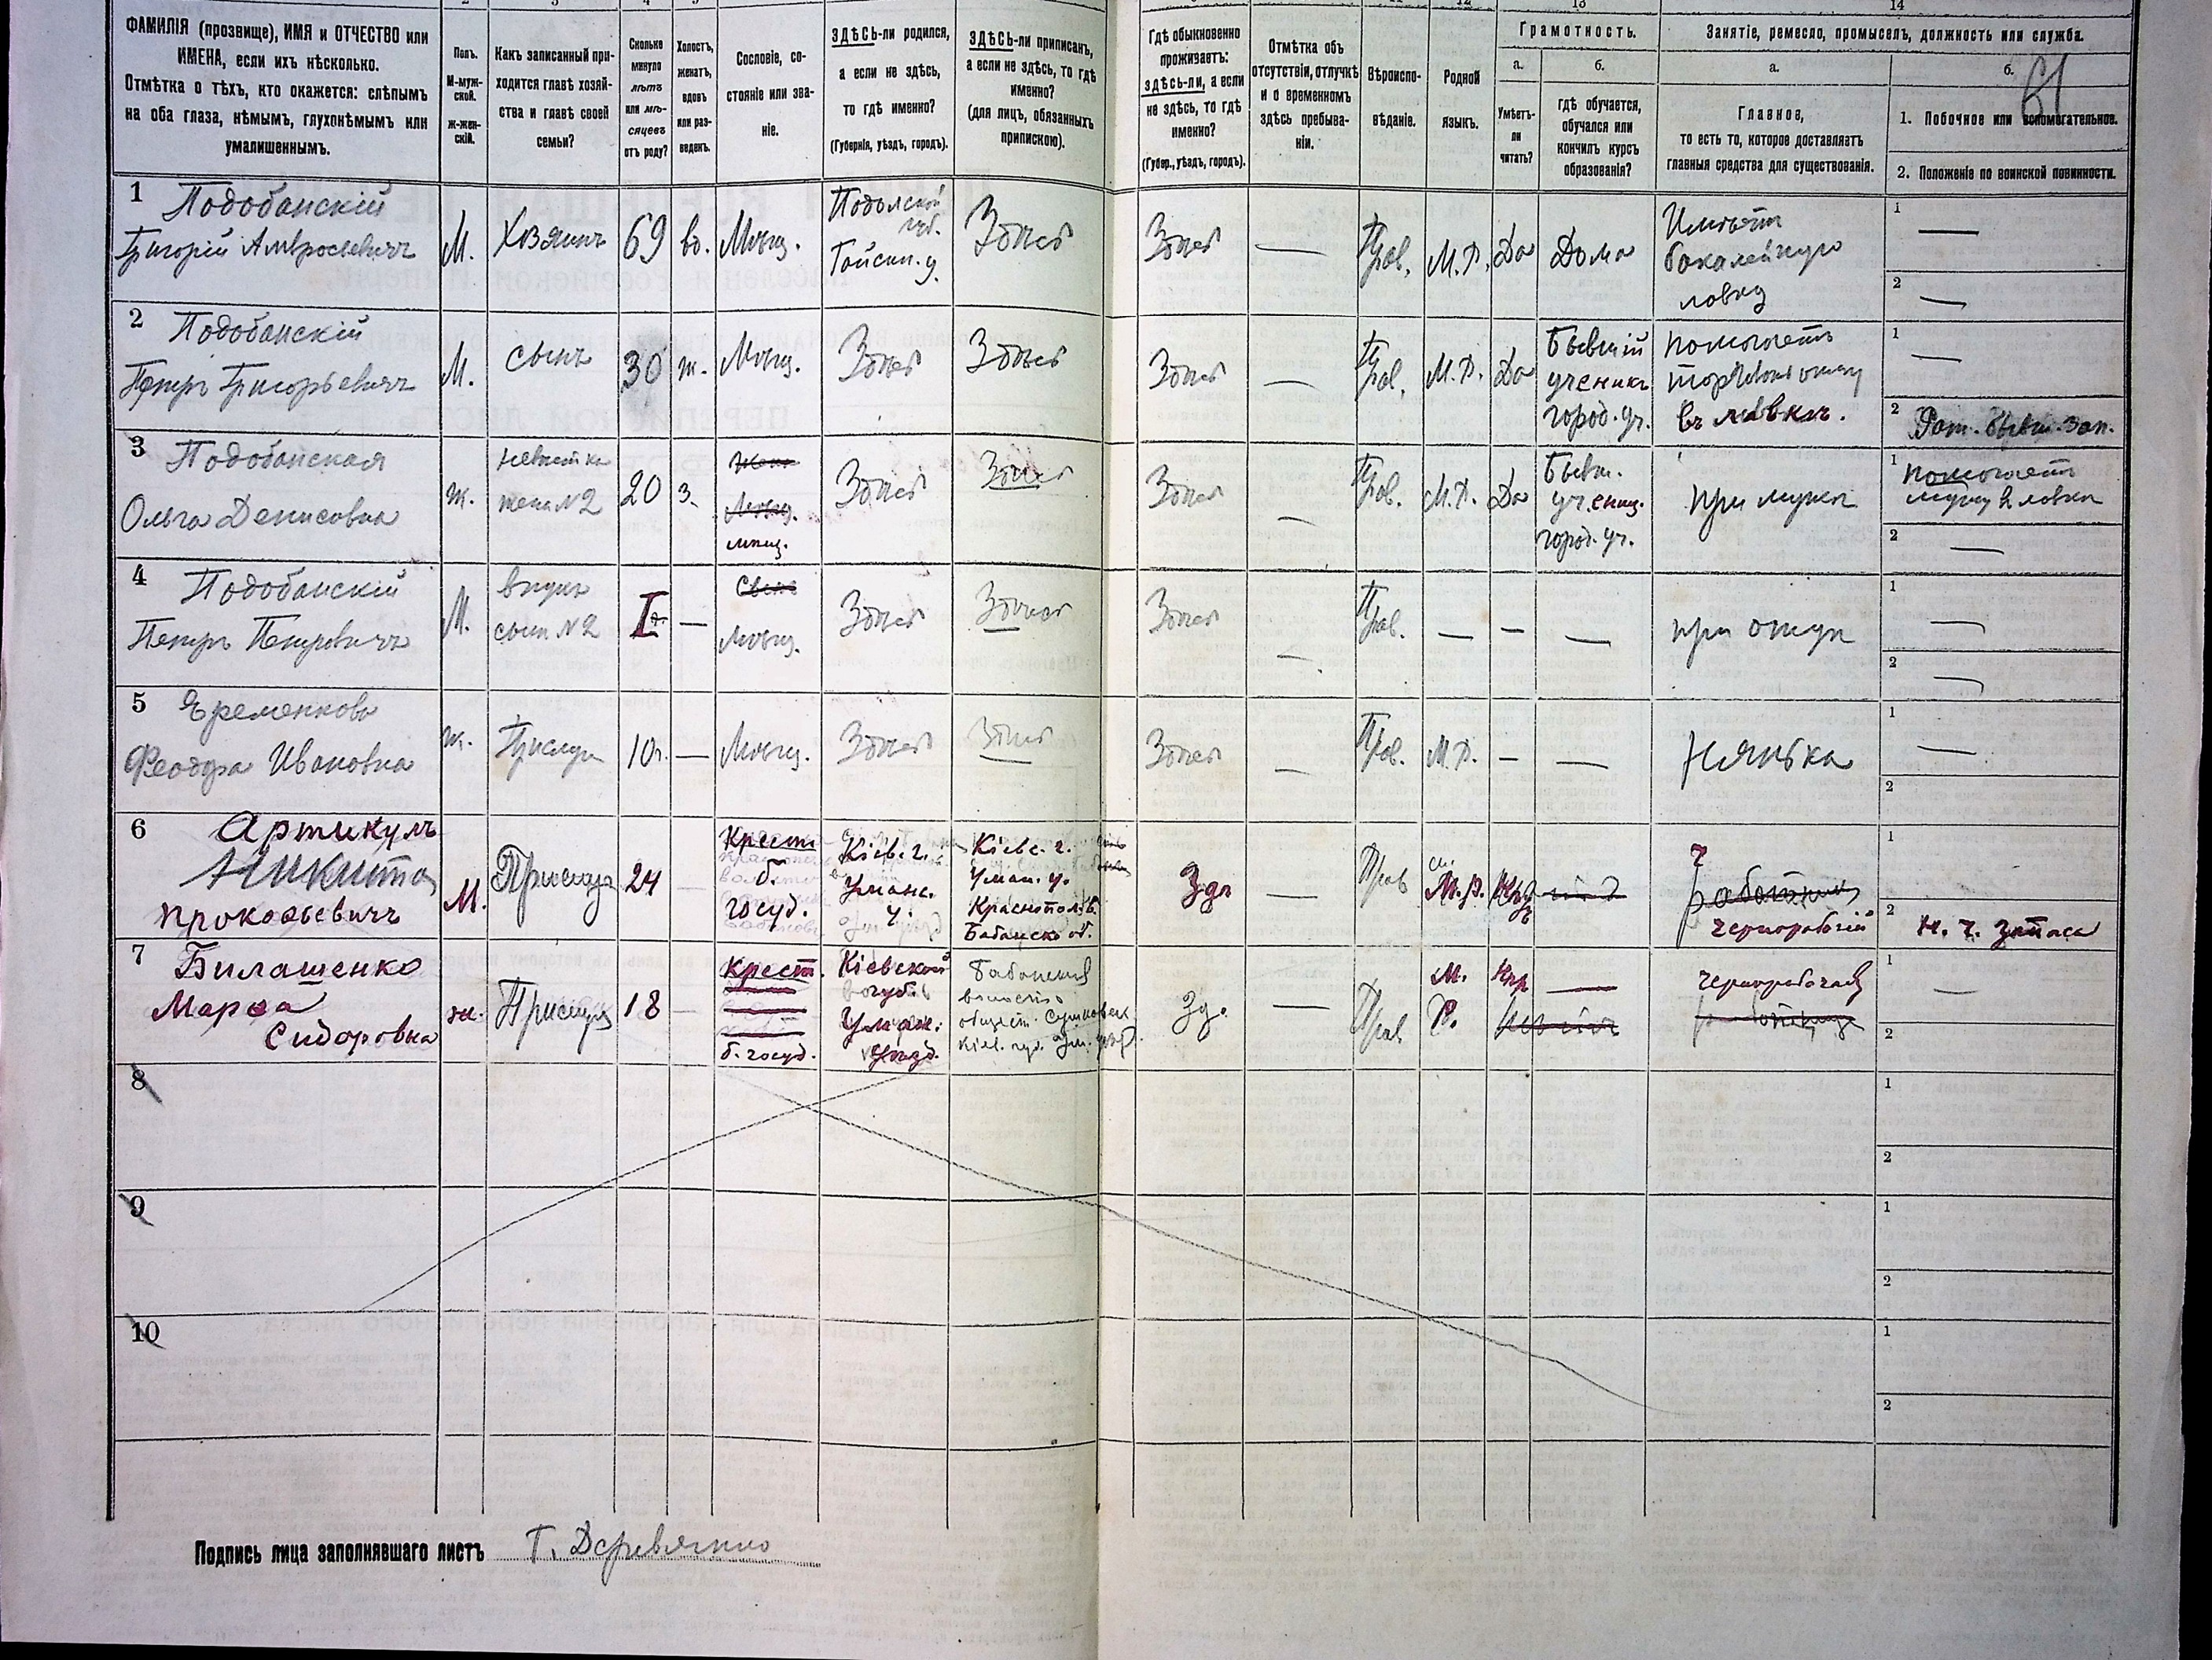 13
14
ФАМИЛІЯ (прозвище), ИМЯ и ОТЧЕСТВО или
ИМЕНА, если ихъ нѣсколько.
Отмѣтка о тѣхъ, кто окажется: слѣпымъ
на оба глаза, нѣмымъ, глухонѣмымъ или
умалишеннымъ.
Полъ.
М-муж-
ской.
ж-жен-
скій.
Какъ записанный при-
ходится главѣ хозяй-
ства и главѣ своей
семьи?
Сколько
минуло
лѣтъ
или мѣ-
сяцевъ
отъ роду?
Холостъ,
женатъ,
вдовъ
или раз-
веденъ.
Сословіе, со-
стояніе или зва-
ніе.
ЗДѢСЬ-ли родился,
а если не здѣсь,
то гдѣ именно?
(Губернія, уѣздъ, городъ).
ЗДѢСЬ-ли приписанъ,
а если не здѣсь, то гдѣ
именно?
(для лицъ, обязанныхъ
припискою).
Гдѣ обыкновенно
проживаетъ:
здѣсь-ли, а если
не здѣсь, то гдѣ
именно?
(Губер., уѣздъ, городъ).
Отмѣтка объ
отсутствіи, отлучкѣ
и о временномъ
здѣсь пребыва-
ніи.
Вѣроиспо-
вѣданіе.
Родной
языкъ.
Грамотность.
а.
Умѣетъ-
ли
читать?
б.
гдѣ обучается,
обучался или
кончилъ курсъ
образованія?
Занятіе, ремесло, промыселъ, должность или служба.
а.
Главное,
то есть то, которое доставляетъ
главныя средства для существованія.
б.
61
1. Побочное или вспомогательное.
2. Положеніе по воинской повинности.
1
Подобанскій
Григорій Амвросіевичъ
М.
Хозяинъ
69
вд.
Мѣщ.
Подолской
губ.
Гайсин. у.
Здѣсь
Здѣсь
—
Прав.
М.Р.
Да
Дома
Имѣетъ
бакалейную
лавку
1
—
2
—
2
Подобанскій
Петръ Григорьевичъ
М.
сынъ
30
ж.
Мѣщ.
Здѣсь
Здѣсь
Здѣсь
—
Прав.
М.Р.
Да
Бывшій
ученикъ
город. уч.
помогаетъ
отцу
въ лавкѣ.
1
—
2
Рат. бывш. зап.
3
Подобанская
Ольга Денисовна
ж.
невѣстка
жена №2
20
з.
Жена
Мѣщ.
мѣщ.
Здѣсь
Здѣсь
Здѣсь
—
Прав.
М.Р.
Да
Бывш.
учениц.
город. уч.
при мужѣ
1
помогаетъ
мужу в лавкѣ
2
—
4
Подобанскій
Петръ Петровичъ
М.
внукъ
сынъ №2
I г.
—
Сынъ
Мѣщ.
Здѣсь
Здѣсь
Здѣсь
—
Прав.
—
—
—
при отцѣ
1
—
2
—
5
Яременкова
Феодора Ивановна
ж.
Прислуга
10 г.
—
Мѣщ.
Здѣсь
Здѣсь
Здѣсь
—
Прав.
М.Р.
—
—
Нянька
1
—
2
6
Артикулъ
Никита
Прокофьевичъ
М.
Прислуга
24
—
Крест
б.
госуд.
Кіев. г.
Уманс.
у.
Кіевс. г.
Уман. у.
Краснополь
Бабанско об.
Здѣ
—
Прав
М.Р.
работникъ
чернорабочій
1
2
Н. ч. запаса
7
Билашенко
Марѳа
Сидоровна
ж.
Прислуга
18
—
Крест.
б. госуд.
Кіевской
губ.
Уман.
уѣзд.
Бабанской
волости
общест.
Кіев. губ. Ум. уѣзд.
Зд.
—
Прав
М.
Р.
—
чернорабочая
1
—
2
8
1
2
9
1
2
10
1
2
Подпись лица заполнявшаго листъ Г. Деревянко